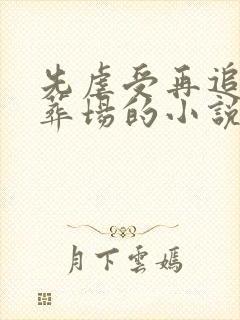 先虐受再追
葬場的小說
月下雲嫣